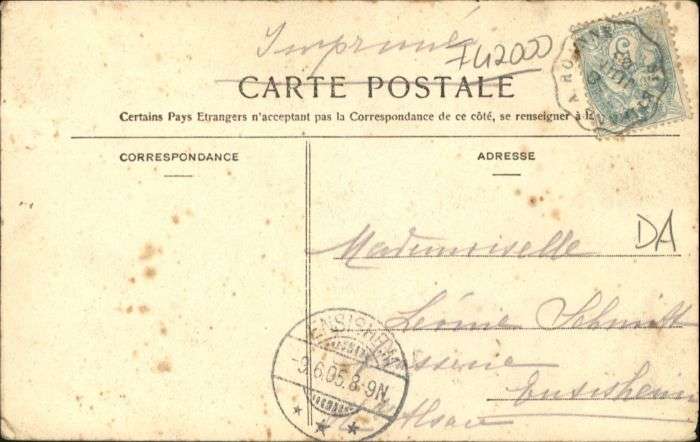 Imprimé
F42000
CARTE POSTALE
Certains Pays Etrangers n'acceptant pas la Correspondance de ce côté, se renseigner à la
CORRESPONDANCE
ADRESSE
DA
Mademoiselle
Léonie Schmitt
Ensisheim
Alsace
ENSISHEIM
-9.6.05.8-9N.